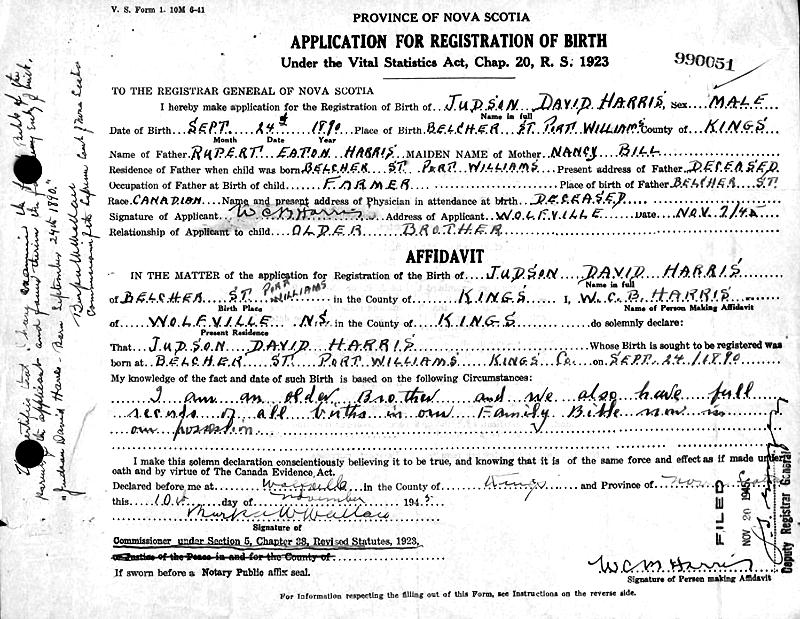 V. S. Form 1. 10M 6-41
PROVINCE OF NOVA SCOTIA
APPLICATION FOR REGISTRATION OF BIRTH
Under the Vital Statistics Act, Chap. 20, R. S. 1923
990051
TO THE REGISTRAR GENERAL OF NOVA SCOTIA
I hereby make application for the Registration of Birth of JUDSON DAVID HARRIS Sex MALE
Name in full
Date of Birth SEPT. 24th 1890 Place of Birth BELCHER ST. PORT WILLIAMS County of KINGS
Month Date Year
Name of Father RUPERT EATON HARRIS MAIDEN NAME of Mother NANCY BILL
Residence of Father when child was born BELCHER ST PORT WILLIAMS Present address of Father DECEASED
Occupation of Father at Birth of child FARMER Place of birth of Father BELCHER ST
Race CANADIAN Name and present address of Physician in attendance at birth DECEASED
Signature of Applicant W C B Harris Address of Applicant WOLFVILLE Date NOV. 7/45
Relationship of Applicant to child OLDER BROTHER
AFFIDAVIT
IN THE MATTER of the application for Registration of the Birth of JUDSON DAVID HARRIS
Name in full
of BELCHER ST. PORT WILLIAMS in the County of KINGS I, W. C. B. HARRIS
Birth Place Name of Person Making Affidavit
of WOLFVILLE N.S. in the County of KINGS do solemnly declare:
Present Residence
That JUDSON DAVID HARRIS Whose Birth is sought to be registered was
born at BELCHER ST. PORT WILLIAMS KINGS Co. on SEPT. 24/1890
My knowledge of the fact and date of such Birth is based on the following Circumstances:
I am an older Brother and we also have full
records of all births in our Family Bible now in
our possession
I make this solemn declaration conscientiously believing it to be true, and knowing that it is of the same force and effect as if made under
oath and by virtue of The Canada Evidence Act.
Declared before me at Wolfville in the County of Kings and Province of Nova
this 10th day of November 1945
W Wallace
Signature of
Commissioner under Section 5, Chapter 38, Revised Statutes, 1923,
or Justice of the Peace in and for the County of
If sworn before a Notary Public affix seal.
W C B Harris
Signature of Person making Affidavit
For Information respecting the filling out of this Form, see Instructions on the reverse side.
FILED
NOV 20 1945
Deputy Registrar General
the applicant and found therein the
"Judson David Harris - Born September 24th 1890."
Wallace